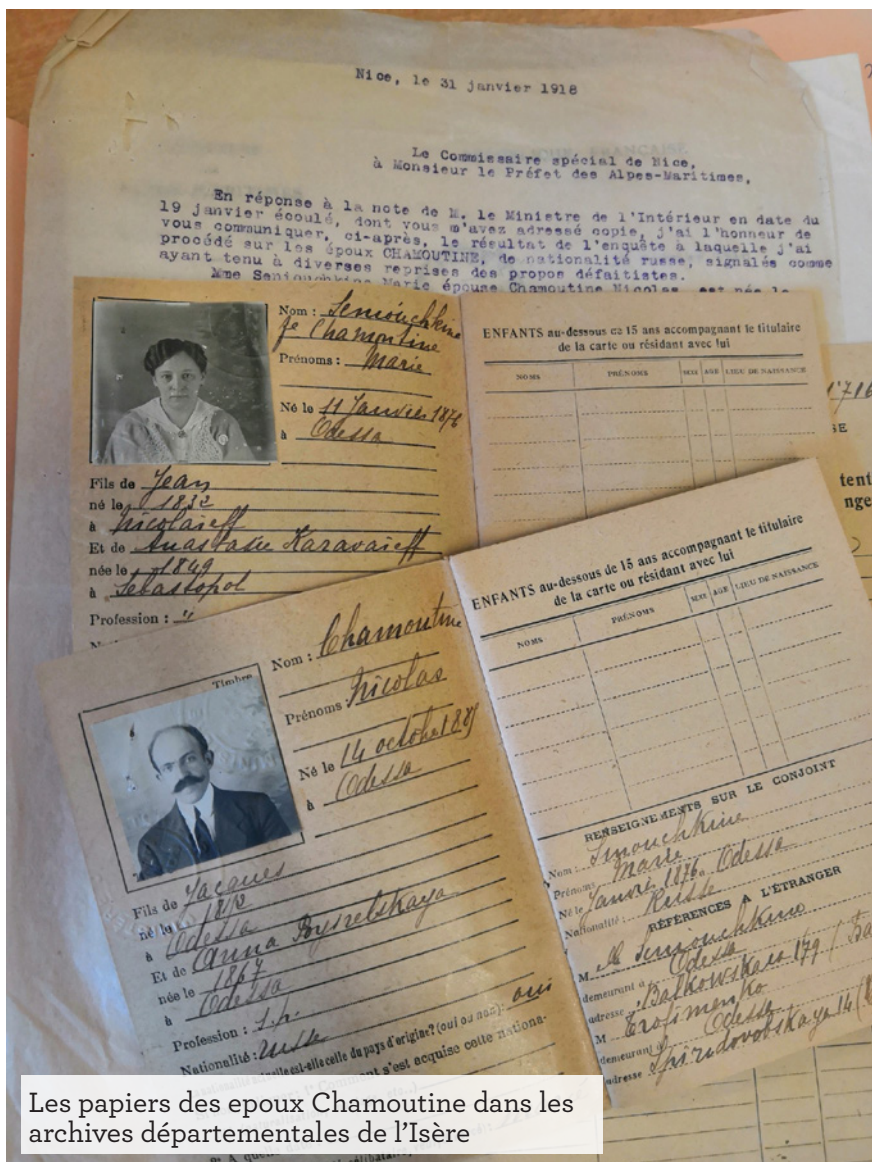 Nice, le 31 janvier 1918
Le Commissaire spécial de Nice,
à Monsieur le Préfet des Alpes-Maritimes,
En réponse à la note de M. le Ministre de l'Intérieur en date du
19 janvier écoulé, dont vous m'avez adressé copie, j'ai l'honneur de
vous communiquer, ci-après, le résultat de l'enquête à laquelle j'ai
procédé sur les époux CHAMOUTINE, de nationalité russe, signalés comme
ayant tenu à diverses reprises des propos défaitistes.
Mme Seniouchkine Marie épouse Chamoutine Nicolas, est née le
Nom : Seniouchkine
fe Chamoutine
Prénoms : Marie
Né le 11 Janvier 1876
à Odessa
Fils de Jean
né le 1832
à Nicolaieff
Et de Anastasie Karavaieff
née le 1849
à Sebastopol
Profession : "
ENFANTS au-dessous de 15 ans accompagnant le titulaire
de la carte ou résidant avec lui
NOMS PRÉNOMS SEXE AGE LIEU DE NAISSANCE
Timbre
Nom : Chamoutine
Prénoms : Nicolas
Né le 14 octobre
à Odessa
Fils de Jacques
né le
à Odessa
Et de Anna
née le 1867
à Odessa
Profession : s.p.
Nationalité : russe
est-elle celle du pays d'origine? (oui ou non) : oui
s'est acquise cette nationa-
ENFANTS au-dessous de 15 ans accompagnant le titulaire
de la carte ou résidant avec lui
NOMS PRÉNOMS SEXE AGE LIEU DE NAISSANCE
RENSEIGNEMENTS SUR LE CONJOINT
Nom : Smouchkine
Prénoms Marie
Né le Janvier 1876 Odessa
Nationalité : Russe
RÉFÉRENCES A L'ÉTRANGER
M
demeurant à Odessa
adresse Balkowskaia 179
M Trofimenko
demeurant à Odessa
adresse 14
Les papiers des epoux Chamoutine dans les
archives départementales de l'Isère